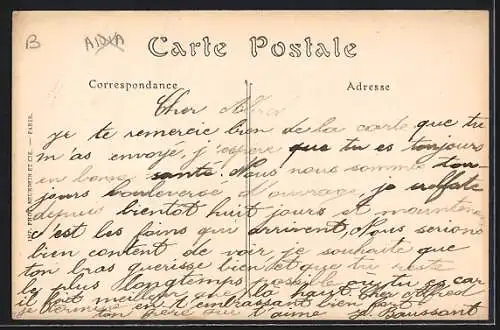 B
AIDIA
Carte Postale
Correspondance
Adresse
Cher Alfred
je te remercie bien de la carte que tu
m'as envoyé, j'espère que tu es toujours
en bonne santé. Nous nous somme tou-
jours bouleversé d'ouvrage, je
depuis bientot huit jours et maintena
c'est les foins qui arrivent, Nous serions
bien content de voir, je souhaite que
ton bras guerisse bien, et que tu reste
le plus longtemps possible ou tu es car
il fait meilleur que la haut Cher Alfred
je termine en t'embrassant bien fort
ton père qui t'aime J. Baussant